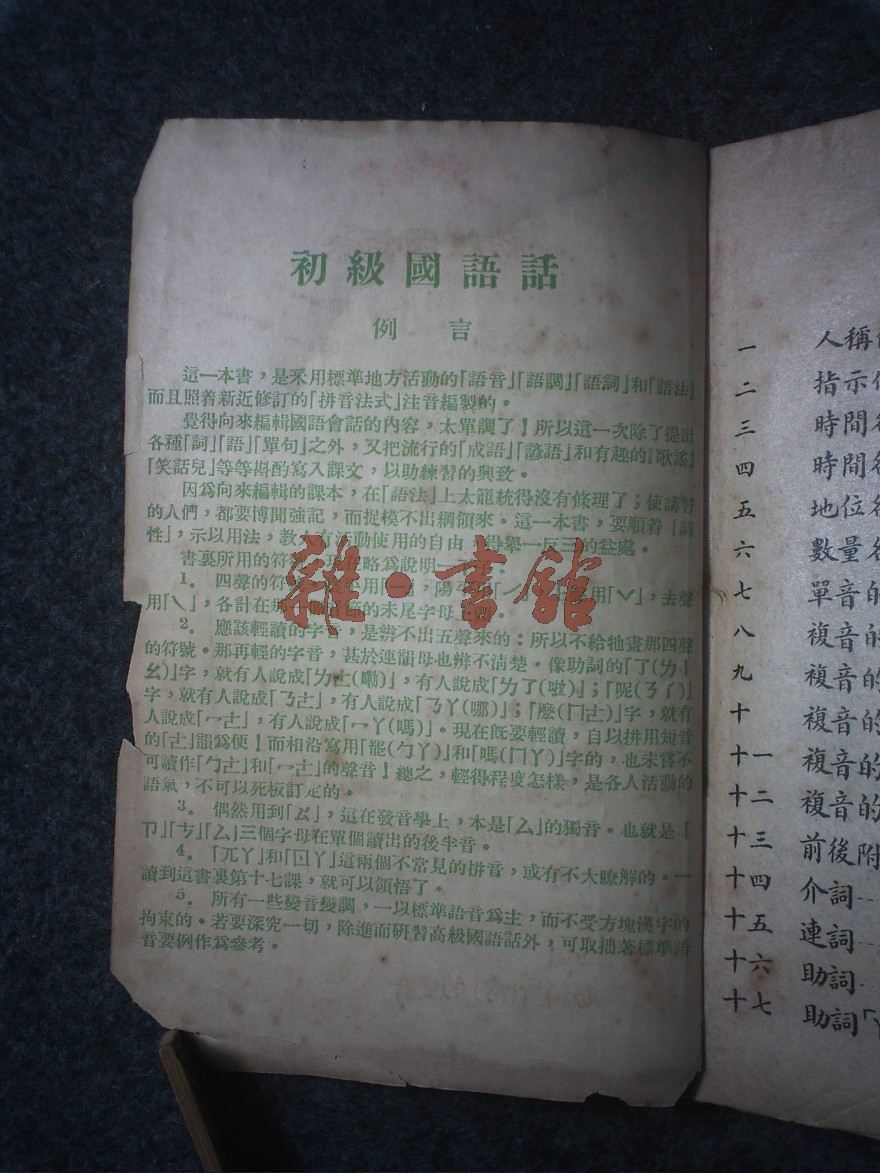 初級國語話
例言
這一本書，是釆用標準地方活動的「語音」「語調」「語詞」和「語法」
而且照着新近修訂的「拼音法式」注音編製的。
覺得向來編輯國語會話的內容，太單調了！所以這一次除了提出
各種「詞」「語」「單句」之外，又把流行的「成語」「諺語」和有趣的『歌謠』
「笑話兒」等等斟酌寫入課文，以助練習的興致。
因爲向來編輯的課本，在「語法」上太籠統得沒有條理了；使講習
的人們，都要博聞強記，而捉模不出綱領來。這一本書，要順着「詞
性」，示以用法，教人有活動使用的自由，得舉一反三的益處。
書裏所用的符號，現在略爲說明一
1. 四聲的符 平用 ，陽 「ˊ」， 用「ˇ」，去聲
用「ˋ」，各計在那一個音節的末尾字母上
2. 應該輕讀的字音，是辨不出五聲來的；所以不給牠畫那四聲
的符號。那再輕的字音，甚於連韻母也辨不清楚。像助詞的「了(ㄌㄧ
ㄠ)」字，就有人說成「ㄌㄜ(嘞)」，有人說成「ㄌㄚ(啦)」；「呢(ㄋㄧ)」
字，就有人說成「ㄋㄜ」，有人說成「ㄋㄚ(哪)」；「麽(ㄇㄜ)」字，就有
人說成「ㄇㄜ」，有人說成「ㄇㄚ(嗎)」。現在旣要輕讀，自以拼用短音
的「ㄜ」韻爲便！而相沿寫用「罷(ㄅㄚ)」和「嗎(ㄇㄚ)」字的，也未嘗不
可讀作「ㄅㄜ」和「ㄇㄜ」的聲音！總之，輕得程度怎樣，是各人活動的
語氣，不可以死板訂定的。
3. 偶然用到「ㄥ」，這在發音學上，本是「ㄥ」的獨音。也就是「
ㄗ」「ㄘ」「ㄙ」三個字母在單個讀出的後半音。
4. 「兀ㄚ」和「ㄖㄚ」這兩個不常見的拼音，或有不大瞭解的。一
讀到這書裏第十七課，就可以領悟了。
5. 所有一些變音變調，一以標準語音爲主，而不受方塊漢字的
拘束的。若要深究一切，除進而研習高級國語話外，可取拙著標準語
音要例作爲參考。
雜·書館
一 人稱
二 指示
三 時間
四 時間
五 地位
六 數量
七 單音的
八 複音的
九 複音的
十 複音的
十一 複音的
十二 複音的
十三 前後附
十四 介詞
十五 連詞
十六 助詞
十七 助詞「